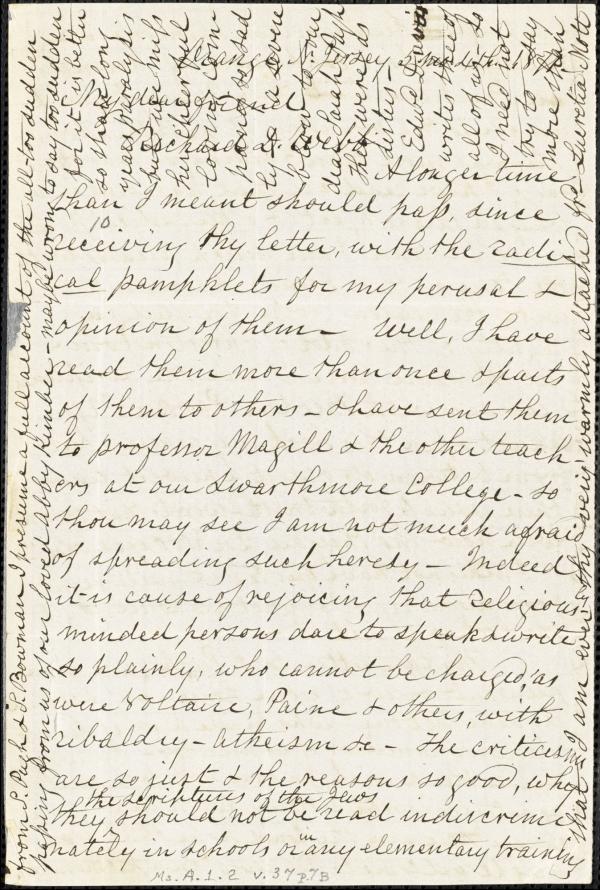 Orange, N. Jersey
My dear friend
Richard D. Webb
A longer time
than I meant should pass, since
receiving thy letter, with the 10 radi-
cal pamphlets for my perusal &
opinion of them - Well, I have
read them more than once & parts
of them to others - & have sent them
to professor Magill & the other teach-
ers at our Swarthmore College - so
thou may see I am not much afraid
of spreading such heresy - Indeed
it is cause of rejoicing that religious
minded persons dare to speak & write
so plainly, who cannot be charged, as
were Voltaire, Paine & others, with
ribaldry - atheism &c - The criticisms
are so just & the reasons so good, why
the scriptures of the Jews
they should not be read indiscrimi-
nately in schools or in any elementary training
that I am ever thy very warmly attached frd. Lucretia Mott
from S. Pugh & S. Bowman I presume a full account of the all-too sudden
passing from us of our loved Abby Kimber - maybe wrong to say too sudden
for it is better
so than long
years paralysis
but we miss
her cheerful
loving com-
pany so sad-
ly - a severe
blow to our
dear Sarah Pugh
they were as
sisters -
Edwd.
writes
all of us so
I need not
try to say
more than
Ms. A. 1. 2 v. 37 p. 7B